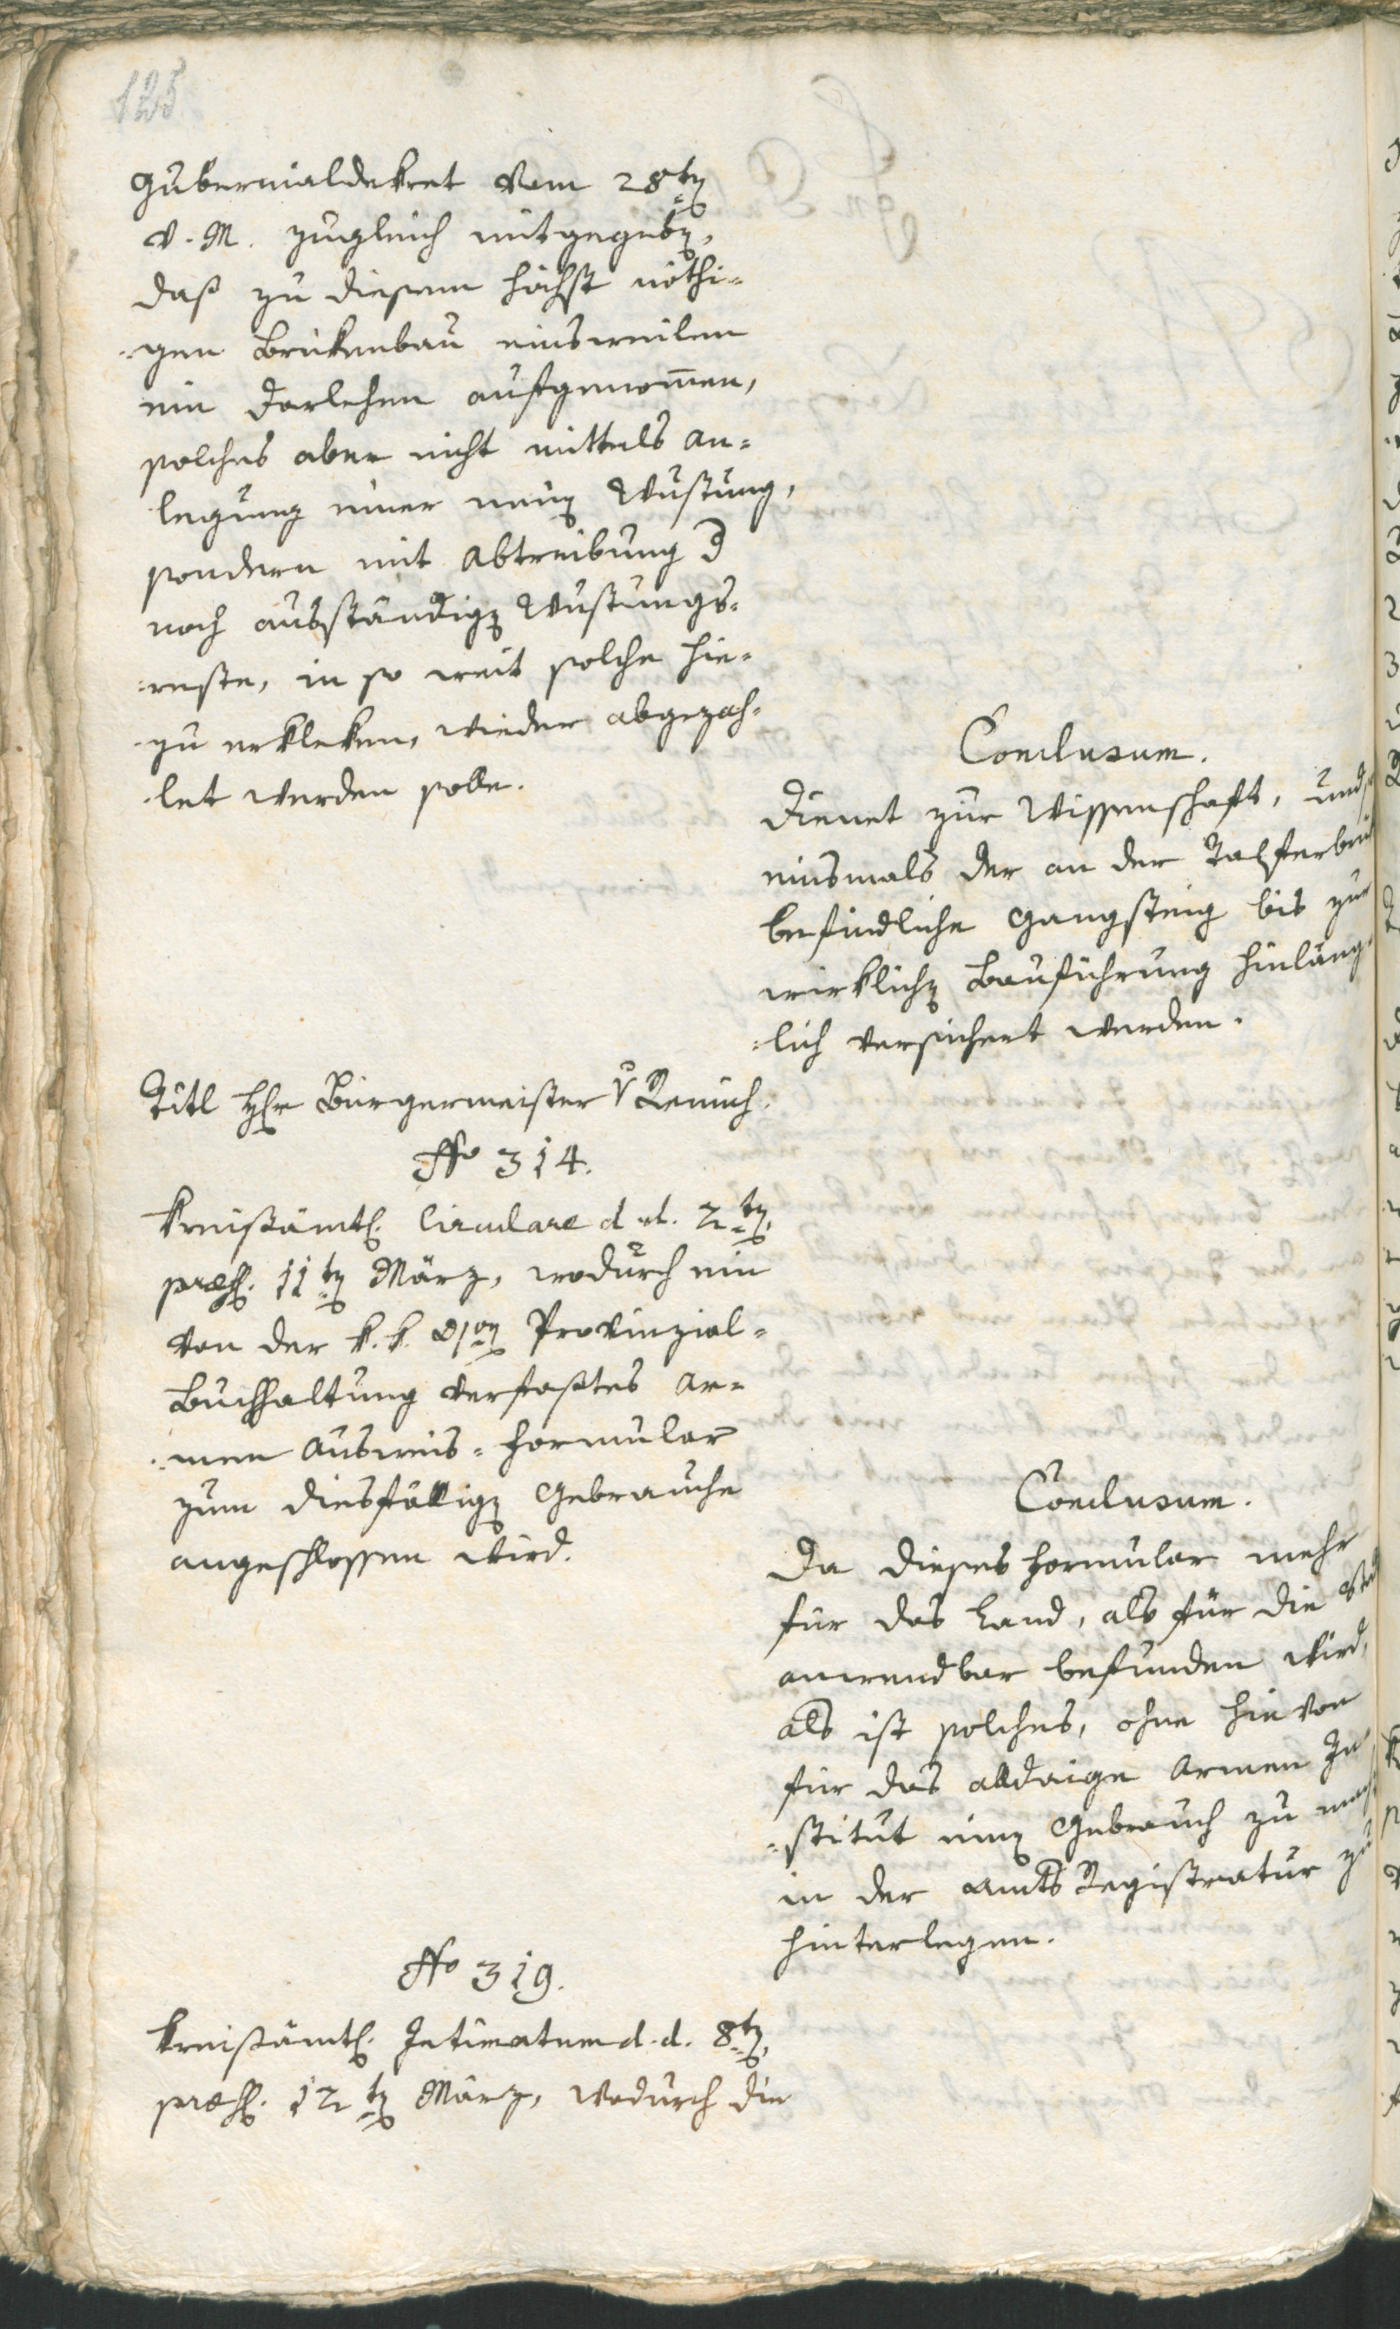 125
Gubernialdekret vom 28ten
v. M. zugleich mitgegeben,
daß zu diesem höchst nöthi-
-gen Brükenbau einsweilen
ein Darlehen aufgenom̄en,
solches aber nicht mittels an-
legung einer neuen Wustung,
sondern mit Abtreibung der
noch ausständigen Wustungs-
-reste, in so weit solche hie-
-zu erkleken, wieder abgezah-
-let werden solle.
Conclusum.
Dienet zur Wissenschaft, und
einsmals der an der Talferbrük
befindliche Gangsteig bis zur
wirklichen Bauführung hinläng-
-lich versichert werden.
Titl Herr Bürgermeister v Remich.
No 314.
Kreisämtl. Circulare d. d. 2ten,
præs. 11ten März, wodurch ein
von der k. k. Provinzial-
Buchhaltung verfaßtes Ar-
-men Ausweis-Formular
zum diesfälligen Gebrauche
angeschlossen wird.
Conclusum.
Da dieses Formular mehr
für das Land, als für die Stadt
anwendbar befunden wird,
als ist solches, ohne hievon
für das alldaige Armen In-
-stitut einen Gebrauch zu mach
in der Amts Registratur zu
hinterlegen.
No 319.
Kreisämtl. Intimatum d. d. 8ten,
præs. 12ten März, wodurch die